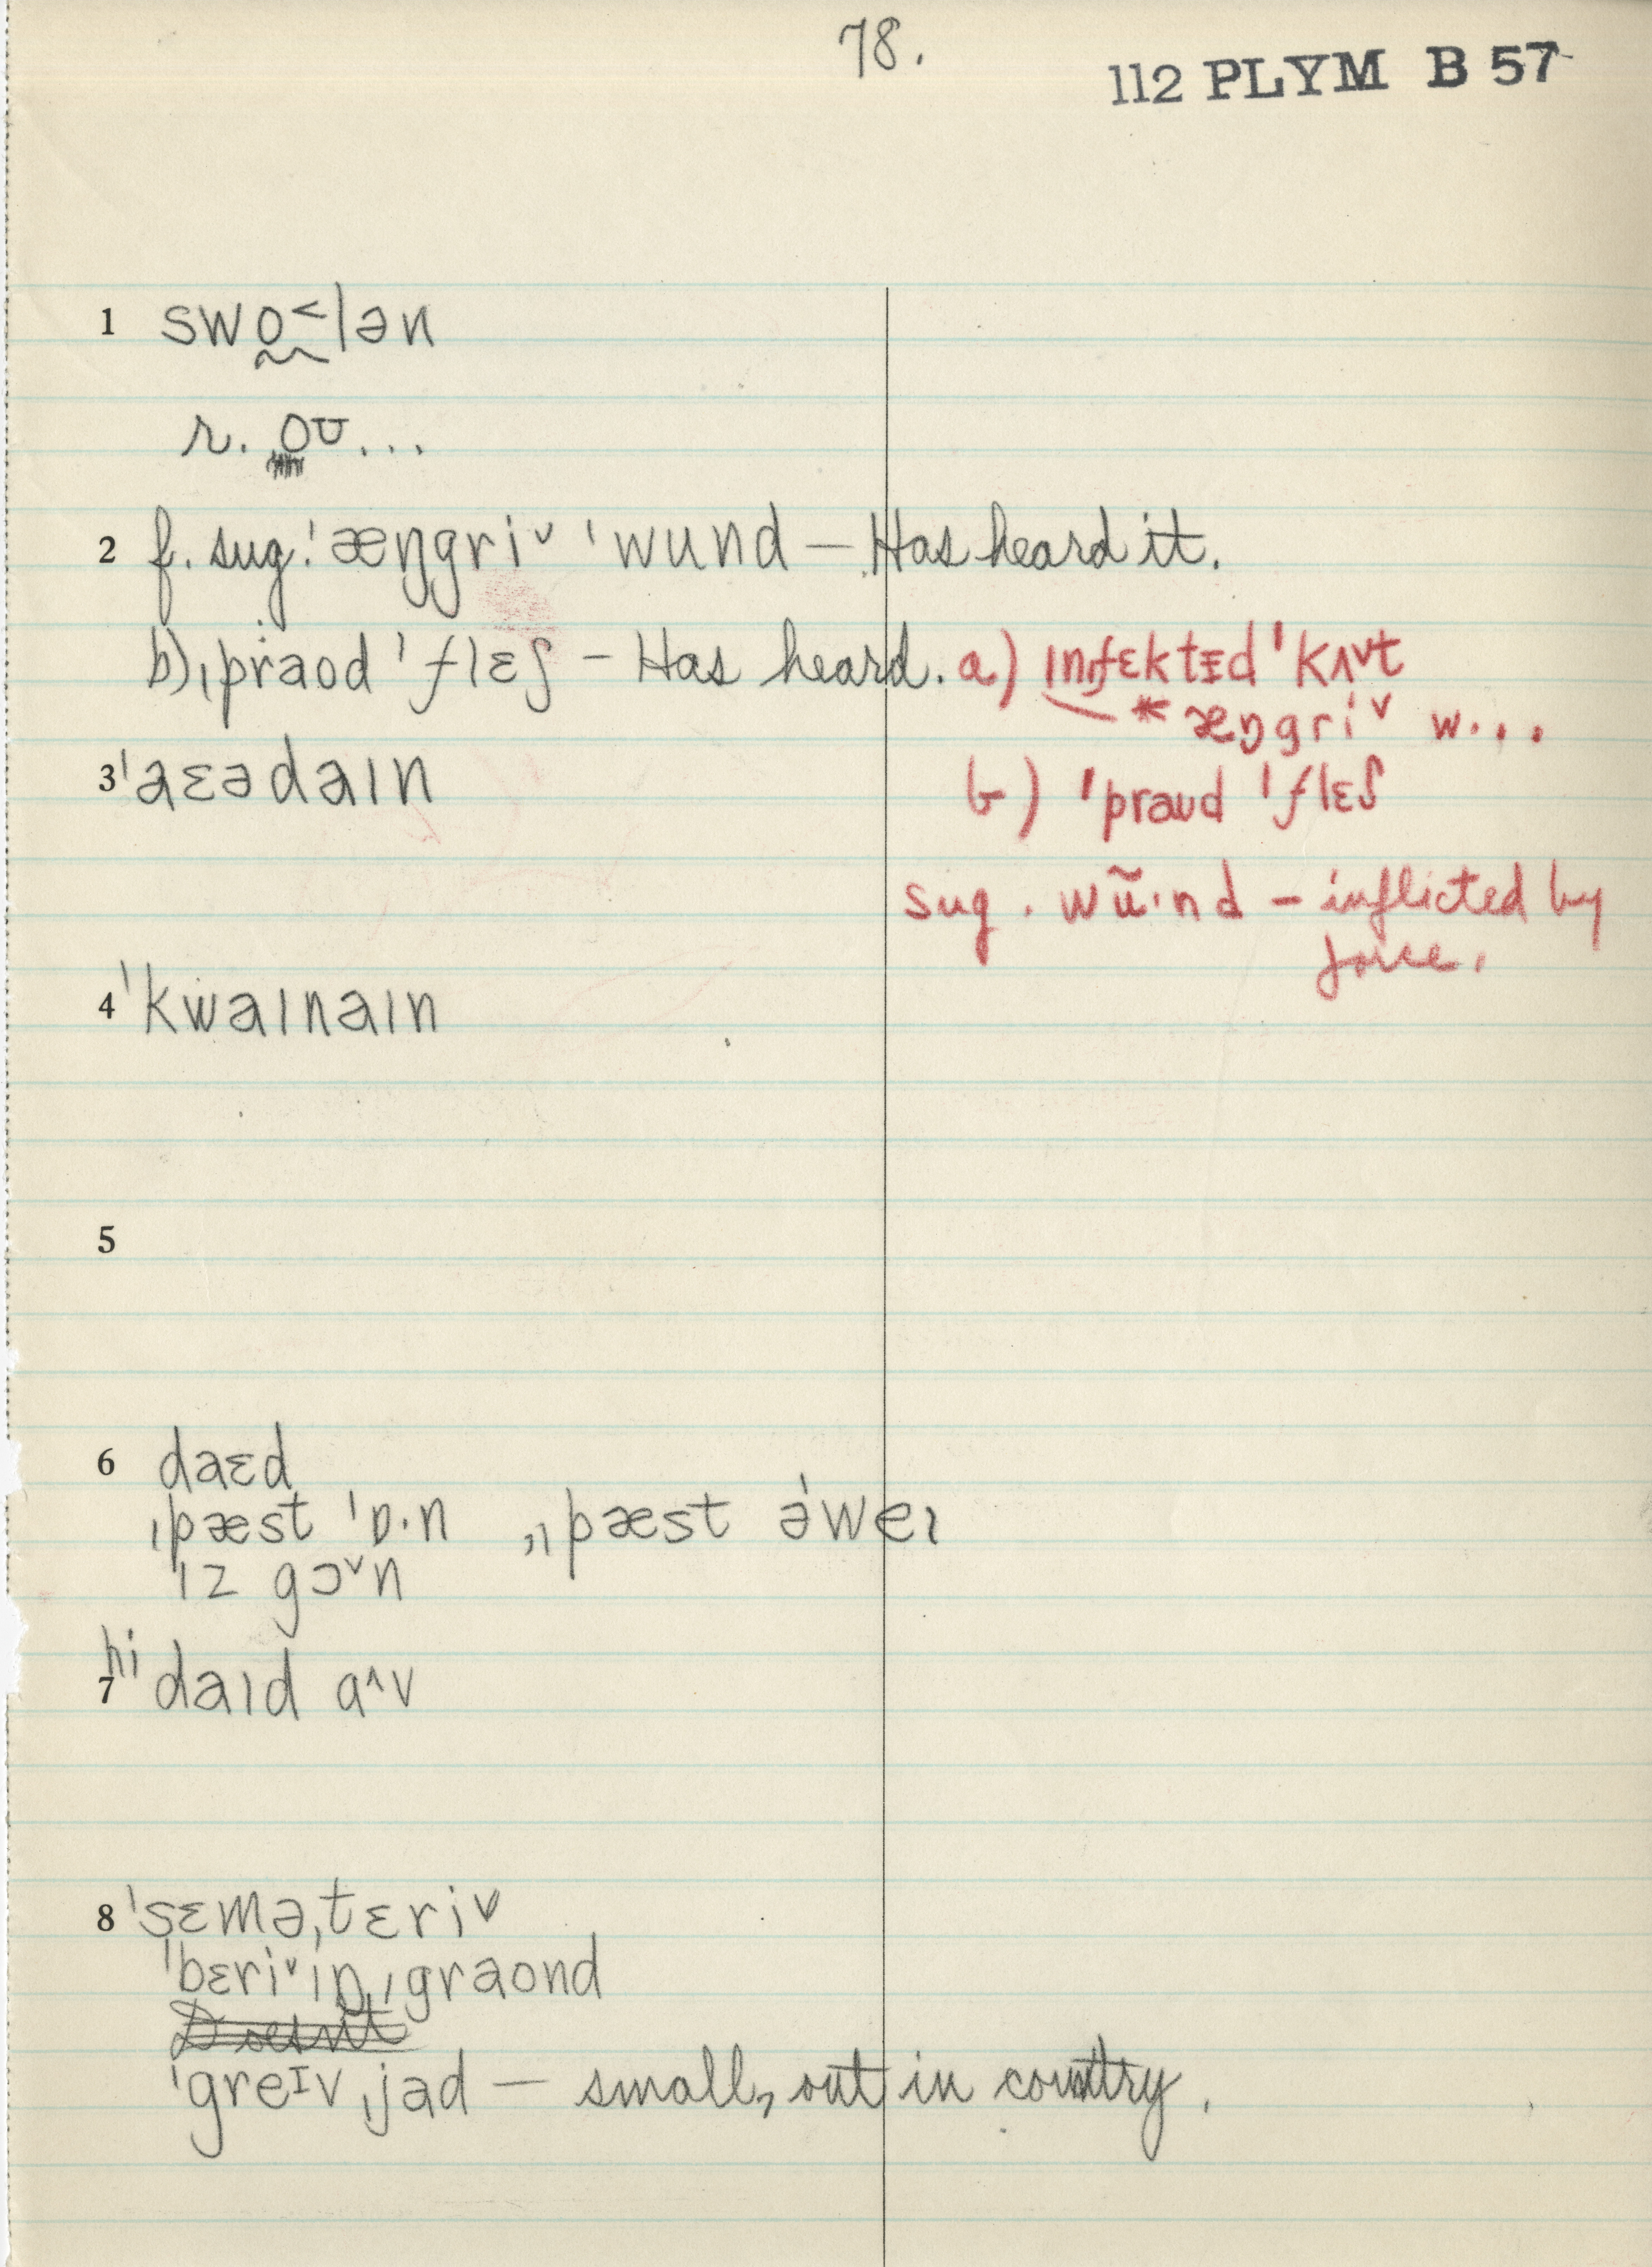 78.
112 PLYM B 57
1 swo˂lən
r. oʊ...
2 f. sug. ˈæŋgriˇ ˈwund — Has heard it.
b) ˌpraod ˈflɛʃ – Has heard. a) ɪnfɛktɪd ˈkʌˇt
* æŋgriˇ w...
3 ˈaɛədaɪn
b) ˈpraʊd ˈflɛʃ
sug. wũ·nd – inflicted by
force.
4 ˈkwaɪnaɪn
5
6 daɛd
ˌpæst ˈɒ·n „ˌpæst əˈweɪ
ɪz gɔˇn
hi
7 daɪd ɑ^v
8 ˈsɛməˌtɛriˇ
ˈbɛriˇɪŋˌgraond
Doesn't
ˈgreɪvˌjad — small, out in country.